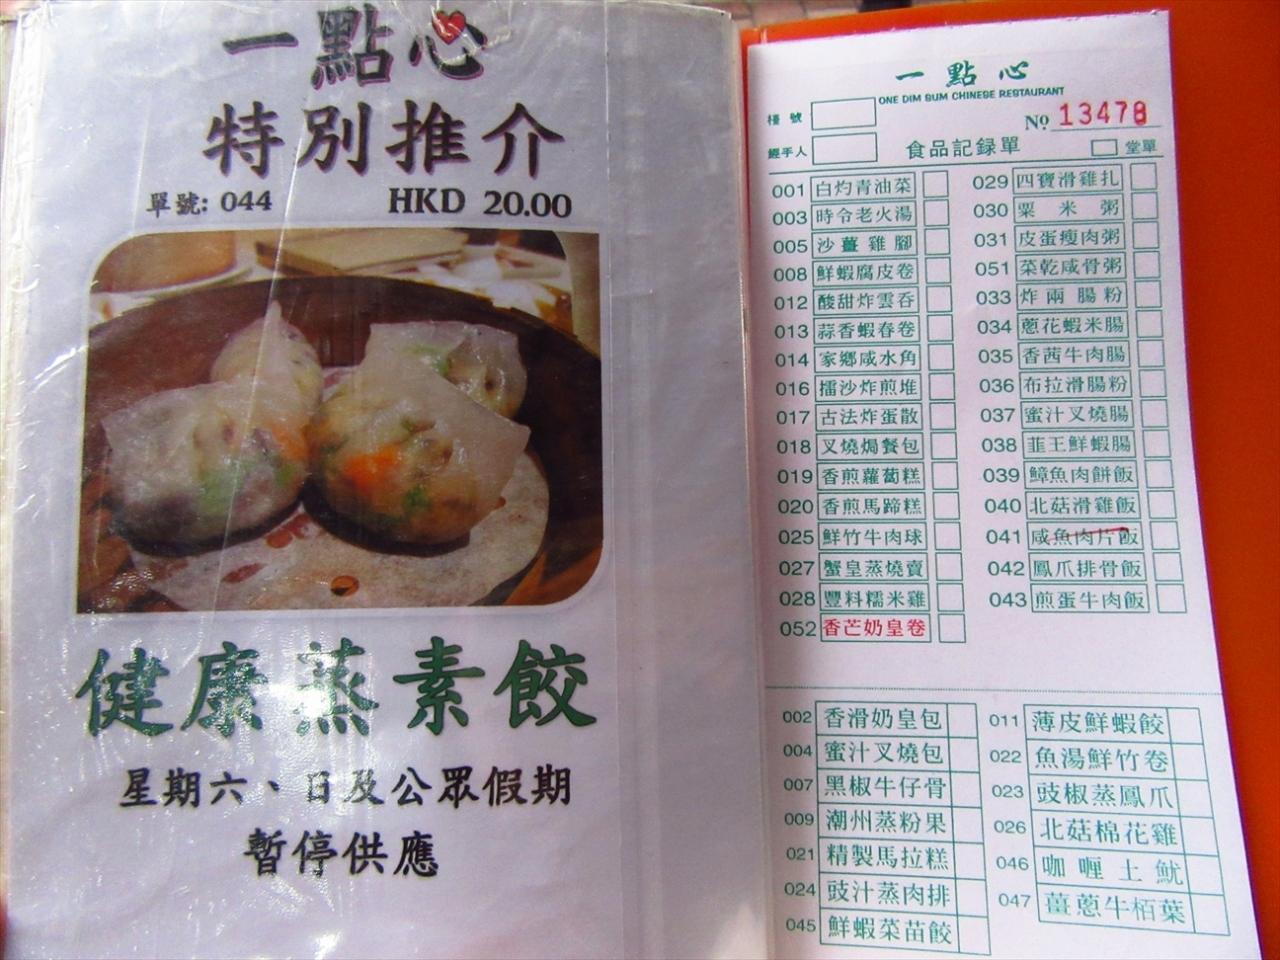 一點心
特別推介
單號: 044 HKD 20.00
健康蒸素餃
星期六、日及公眾假期
暫停供應
一點心
ONE DIM SUM CHINESE RESTAURANT
檯號
No. 13478
經手人
食品記録單
堂單
001 白灼青油菜
003 時令老火湯
005 沙薑雞腳
008 鮮蝦腐皮卷
012 酸甜炸雲吞
013 蒜香蝦春卷
014 家鄉咸水角
016 擂沙炸煎堆
017 古法炸蛋散
018 叉燒焗餐包
019 香煎蘿蔔糕
020 香煎馬蹄糕
025 鮮竹牛肉球
027 蟹皇蒸燒賣
028 豐料糯米雞
052 香芒奶皇卷
029 四寶滑雞扎
030 粟米粥
031 皮蛋瘦肉粥
051 菜乾咸骨粥
033 炸兩腸粉
034 蔥花蝦米腸
035 香茜牛肉腸
036 布拉滑腸粉
037 蜜汁叉燒腸
038 韮王鮮蝦腸
039 鱆魚肉餅飯
040 北菇滑雞飯
041 咸魚肉片飯
042 鳳爪排骨飯
043 煎蛋牛肉飯
002 香滑奶皇包
004 蜜汁叉燒包
007 黑椒牛仔骨
009 潮州蒸粉果
021 精製馬拉糕
024 豉汁蒸肉排
045 鮮蝦菜苗餃
011 薄皮鮮蝦餃
022 魚湯鮮竹卷
023 豉椒蒸鳳爪
026 北菇棉花雞
046 咖喱土魷
047 薑蔥牛栢葉